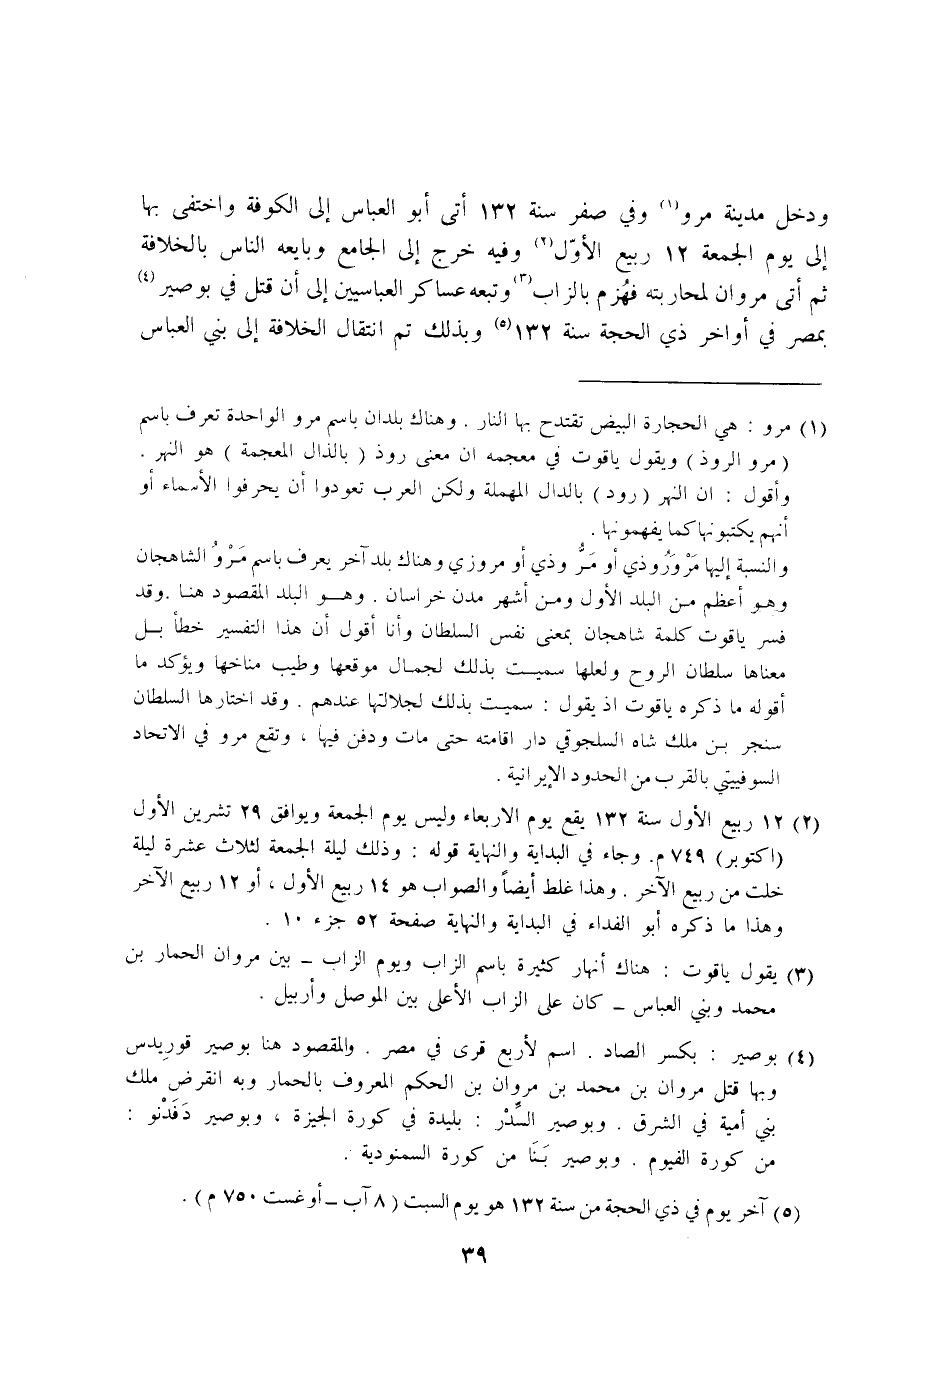 ودخل مدينة مرو(١) وفي صفر سنة ١٣٢ أتى أبو العباس إلى الكوفة واختفى بها
إلى يوم الجمعة ١٢ ربيع الأوّل(٢) وفيه خرج إلى الجامع وبايعه الناس بالخلافة
ثم أتى مروان لمحاربته فهُزم بالزاب(٣) وتبعه عساكر العباسيين إلى أن قتل في بوصير(٤)
بمصر في أواخر ذي الحجة سنة ١٣٢(٥) وبذلك تم انتقال الخلافة إلى بني العباس
(١) مرو : هي الحجارة البيض تقتدح بها النار . وهناك بلدان باسم مرو الواحدة تعرف باسم
(مرو الروذ) ويقول ياقوت في معجمه ان معنى روذ (بالذال المعجمة) هو النهر .
وأقول : ان النهر (رود) بالدال المهملة ولكن العرب تعودوا أن يحرفوا الأسماء أو
أنهم يكتبونها كما يفهمونها .
والنسبة إليها مَرْوَرُوذي أو مَرُّ وذي أو مروزي وهناك بلد آخر يعرف باسم مَرْوُ الشاهجان
وهو أعظم من البلد الأول ومن أشهر مدن خراسان . وهو البلد المقصود هنا .وقد
فسر ياقوت كلمة شاهجان بمعنى نفس السلطان وأنا أقول أن هذا التفسير خطأ بل
معناها سلطان الروح ولعلها سميت بذلك لجمال موقعها وطيب مناخها ويؤكد ما
أقوله ما ذكره ياقوت اذ يقول : سميت بذلك لجلالتها عندهم . وقد اختارها السلطان
سنجر بن ملك شاه السلجوقي دار اقامته حتى مات ودفن فيها ، وتقع مرو في الاتحاد
السوفييتي بالقرب من الحدود الإيرانية .
(٢) ١٢ ربيع الأول سنة ١٣٢ يقع يوم الاربعاء وليس يوم الجمعة ويوافق ٢٩ تشرين الأول
(اكتوبر) ٧٤٩ م. وجاء في البداية والنهاية قوله : وذلك ليلة الجمعة لثلاث عشرة ليلة
خلت من ربيع الآخر . وهذا غلط أيضاً والصواب هو ١٤ ربيع الأول ، أو ١٢ ربيع الآخر
وهذا ما ذكره أبو الفداء في البداية والنهاية صفحة ٥٢ جزء ١٠ .
(٣) يقول ياقوت : هناك أنهار كثيرة باسم الزاب ويوم الزاب – بين مروان الحمار بن
محمد وبني العباس – كان على الزاب الأعلى بين الموصل وأربيل .
(٤) بوصير : بكسر الصاد . اسم لأربع قرى في مصر . والمقصود هنا بوصير قوريدس
وبها قتل مروان بن محمد بن مروان بن الحكم المعروف بالحمار وبه انقرض ملك
بني أمية في الشرق . وبوصير السِّدْر : بليدة في كورة الجيزة ، وبوصير دَفَدْنو :
من كورة الفيوم . وبوصير بَنَا من كورة السمنودية .
(٥) آخر يوم في ذي الحجة من سنة ١٣٢ هو يوم السبت (٨ آب – أوغست ٧٥٠ م) .
٣٩